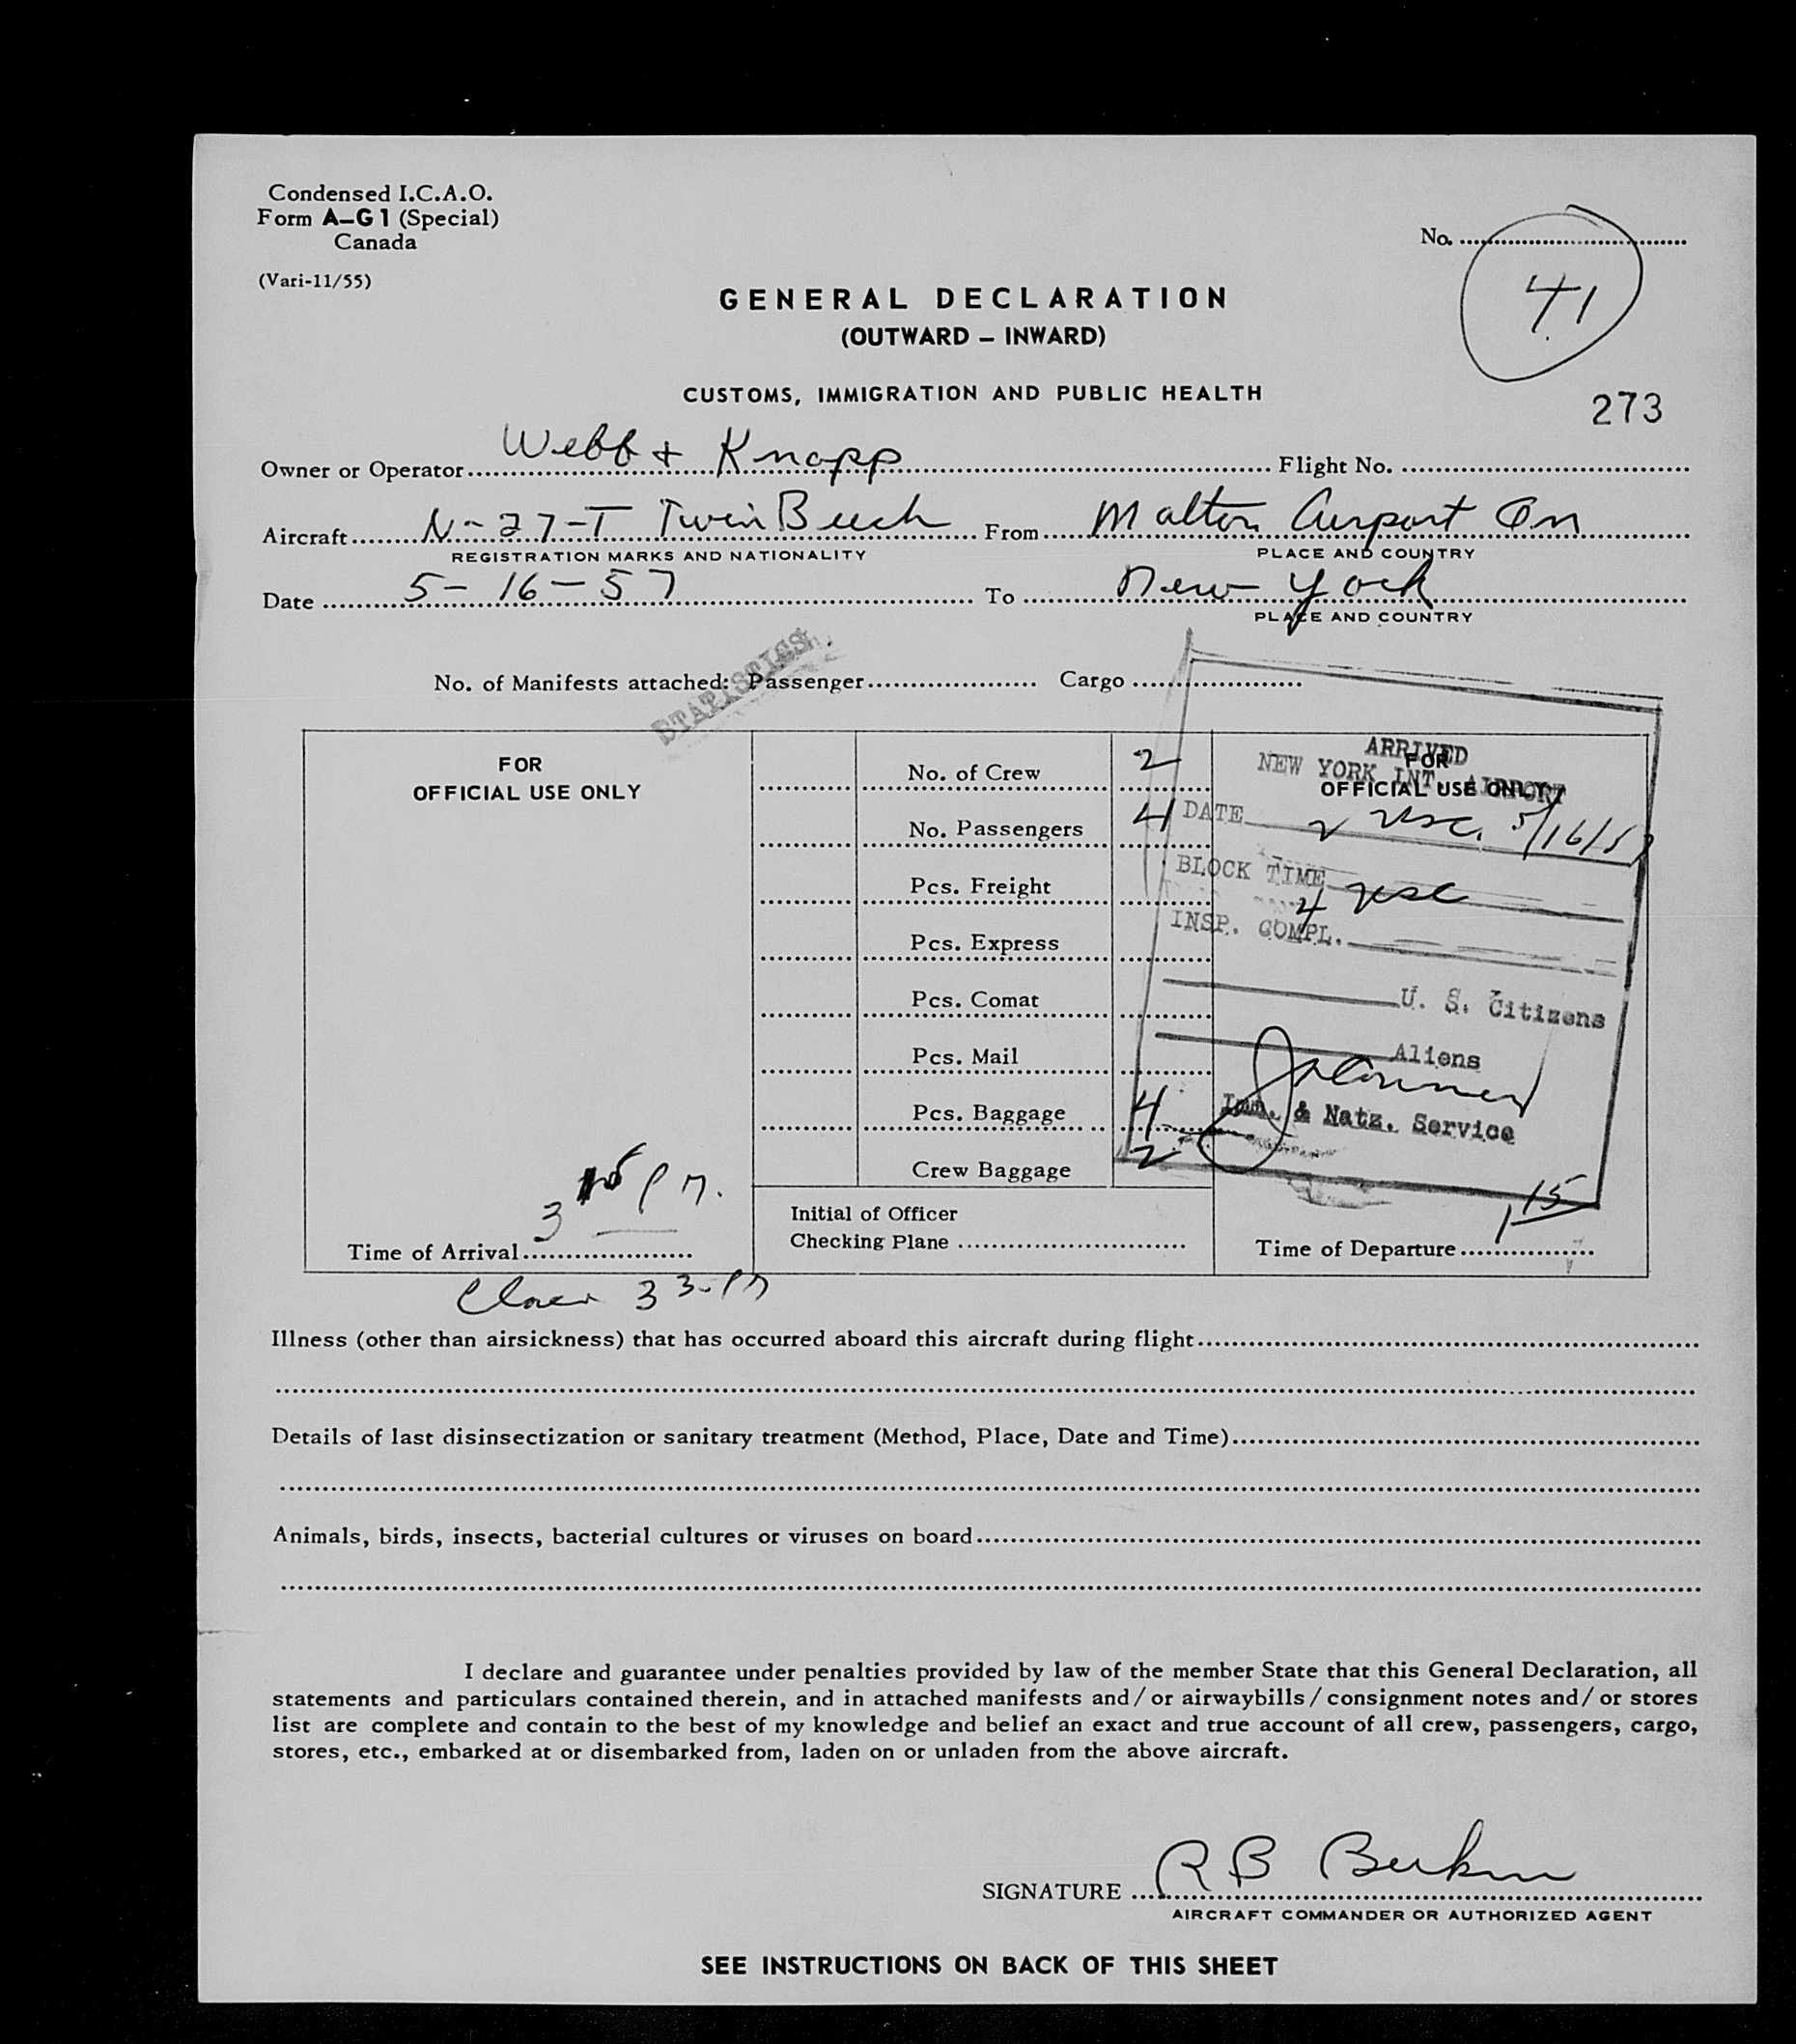 Condensed I.C.A.O.
Form A-G1 (Special)
Canada
(Vari-11/55)
No.
41
GENERAL DECLARATION
(OUTWARD – INWARD)
CUSTOMS, IMMIGRATION AND PUBLIC HEALTH
273
Owner or Operator Webb + Knapp Flight No.
Aircraft N-27-T Twin Beech From Malton Airport On
REGISTRATION MARKS AND NATIONALITY PLACE AND COUNTRY
Date 5-16-57 To New York
PLACE AND COUNTRY
STATISTICS
No. of Manifests attached: Passenger Cargo
FOR
OFFICIAL USE ONLY
No. of Crew 2
No. Passengers 4
Pcs. Freight
Pcs. Express
Pcs. Comat
Pcs. Mail
Pcs. Baggage 4
Crew Baggage 2
Initial of Officer
Checking Plane
FOR
OFFICIAL USE ONLY
ARRIVED
NEW YORK INT. AIRPORT
DATE 2 usc. 5/16/57
BLOCK TIME
4 usc
INSP. COMPL.
U. S. Citizens
Aliens
Imm. & Natz. Service
3 15 PM.
Time of Arrival
1 15
Time of Departure
33-PM
Illness (other than airsickness) that has occurred aboard this aircraft during flight
Details of last disinsectization or sanitary treatment (Method, Place, Date and Time)
Animals, birds, insects, bacterial cultures or viruses on board
I declare and guarantee under penalties provided by law of the member State that this General Declaration, all
statements and particulars contained therein, and in attached manifests and/or airwaybills/consignment notes and/or stores
list are complete and contain to the best of my knowledge and belief an exact and true account of all crew, passengers, cargo,
stores, etc., embarked at or disembarked from, laden on or unladen from the above aircraft.
SIGNATURE R B
AIRCRAFT COMMANDER OR AUTHORIZED AGENT
SEE INSTRUCTIONS ON BACK OF THIS SHEET